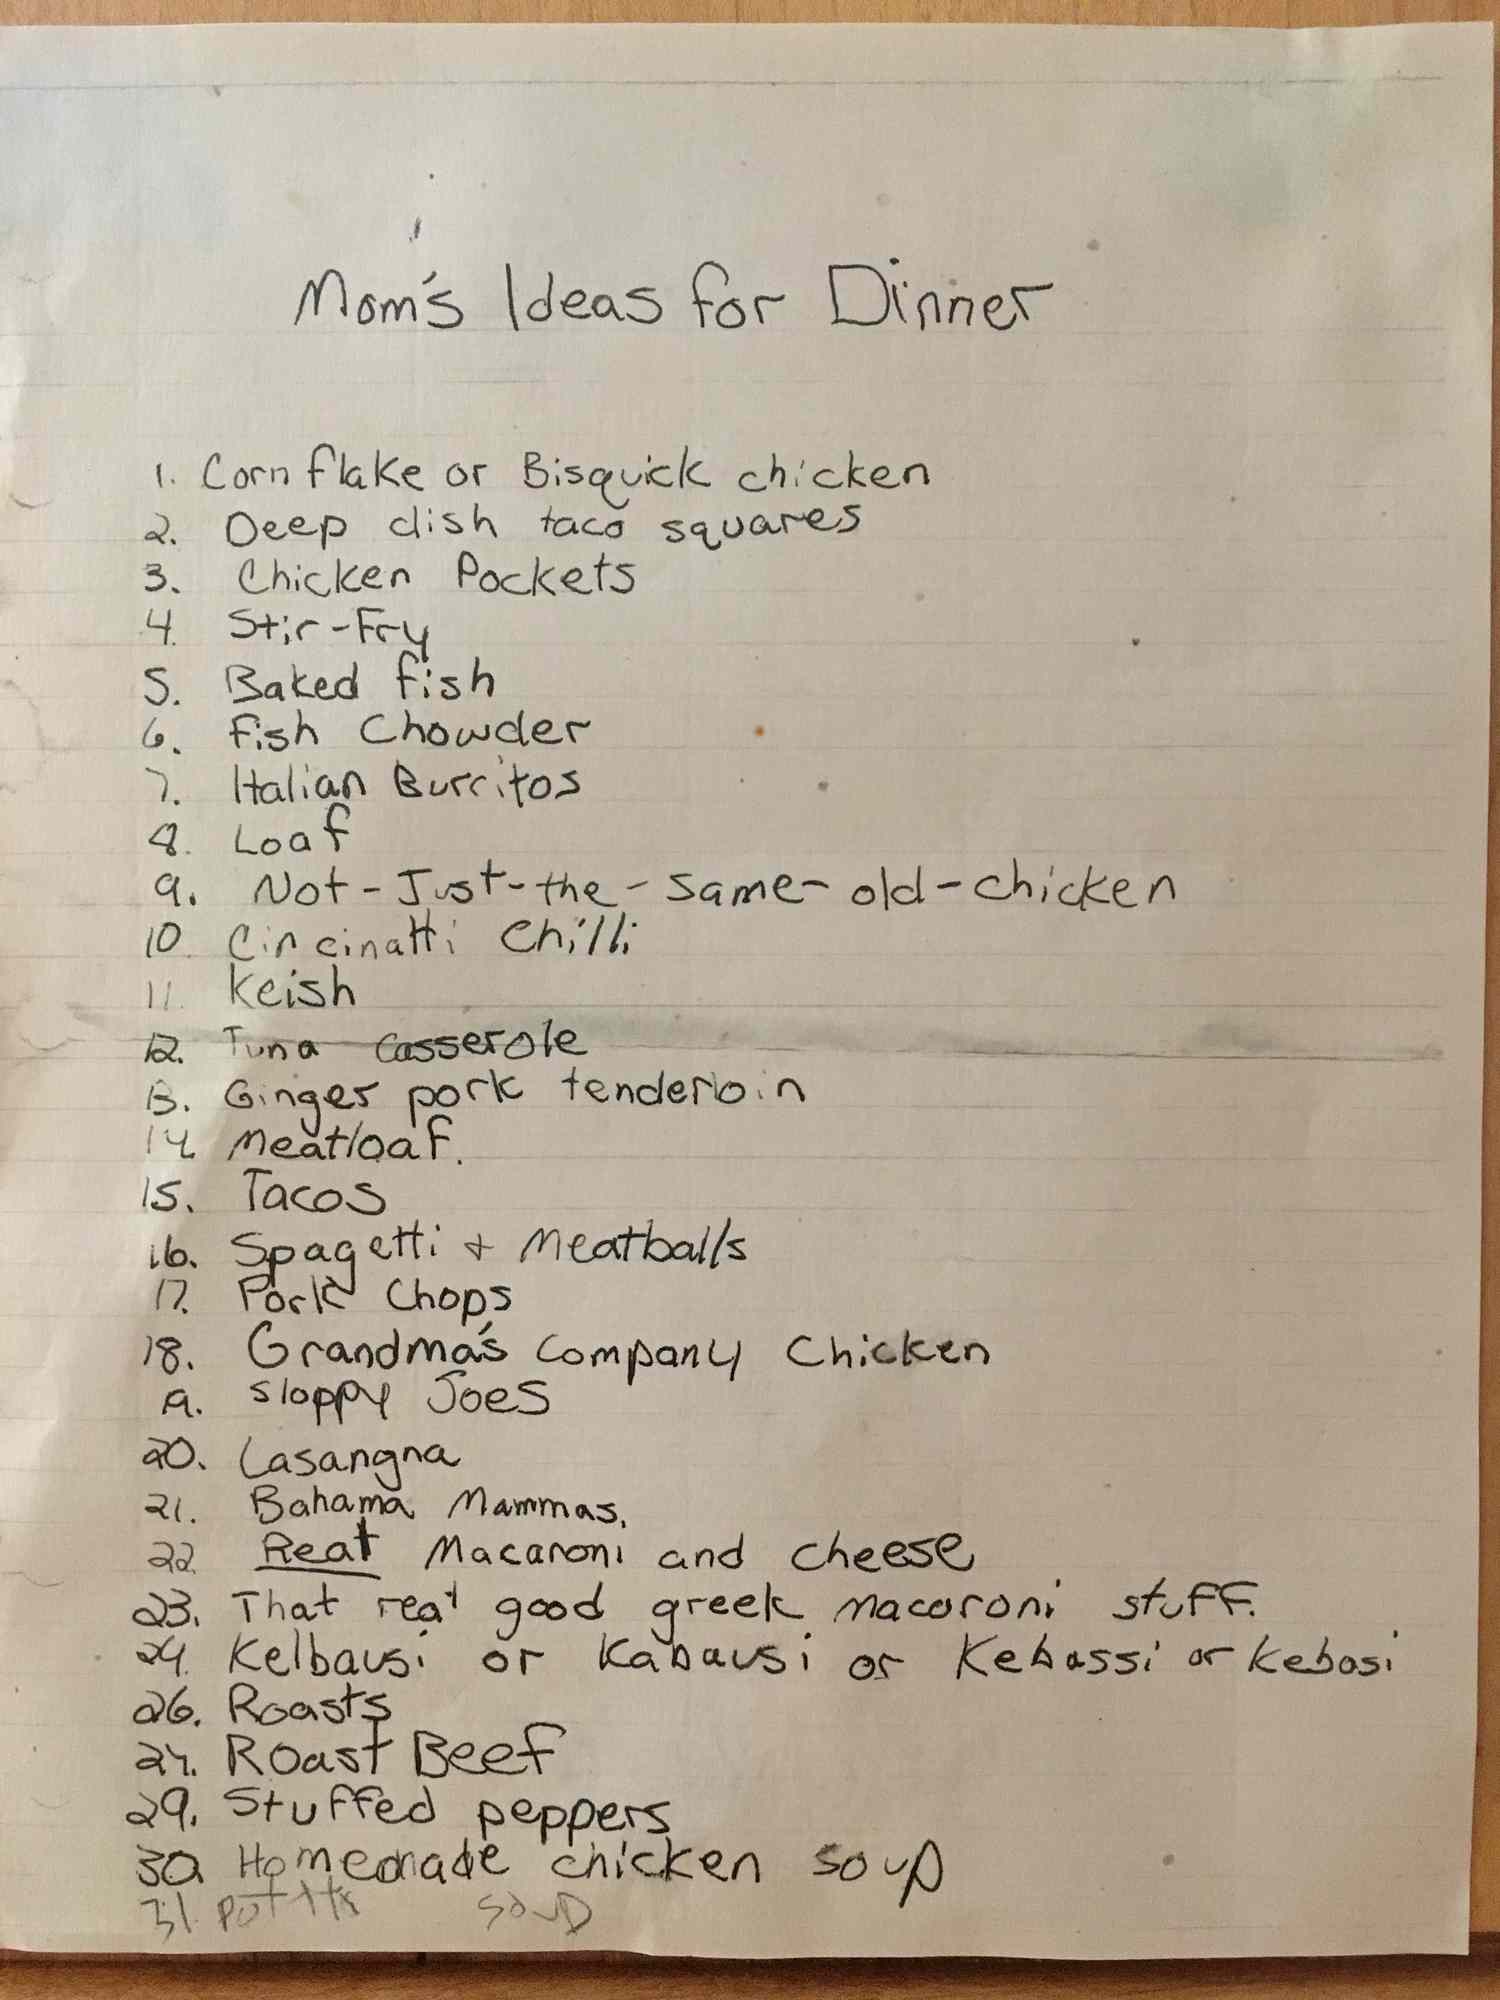 Mom's Ideas for Dinner
1. Corn flake or Bisquick chicken
2. Deep dish taco squares
3. Chicken Pockets
4. Stir-Fry
5. Baked fish
6. Fish Chowder
7. Italian Burritos
8. Loaf
9. Not-Just-the-same-old-chicken
10. Cincinatti Chilli
11. Keish
12. Tuna Casserole
13. Ginger pork tenderloin
14. Meatloaf.
15. Tacos
16. Spagetti + Meatballs
17. Pork Chops
18. Grandma's Company Chicken
19. Sloppy Joes
20. Lasangna
21. Bahama Mammas.
22. Real Macaroni and cheese
23. That real good greek macaroni stuff.
24. Kelbausi or Kabausi or Kebassi or kebasi
26. Roasts
27. Roast Beef
29. Stuffed peppers
30. Homemade chicken soup
31. soup